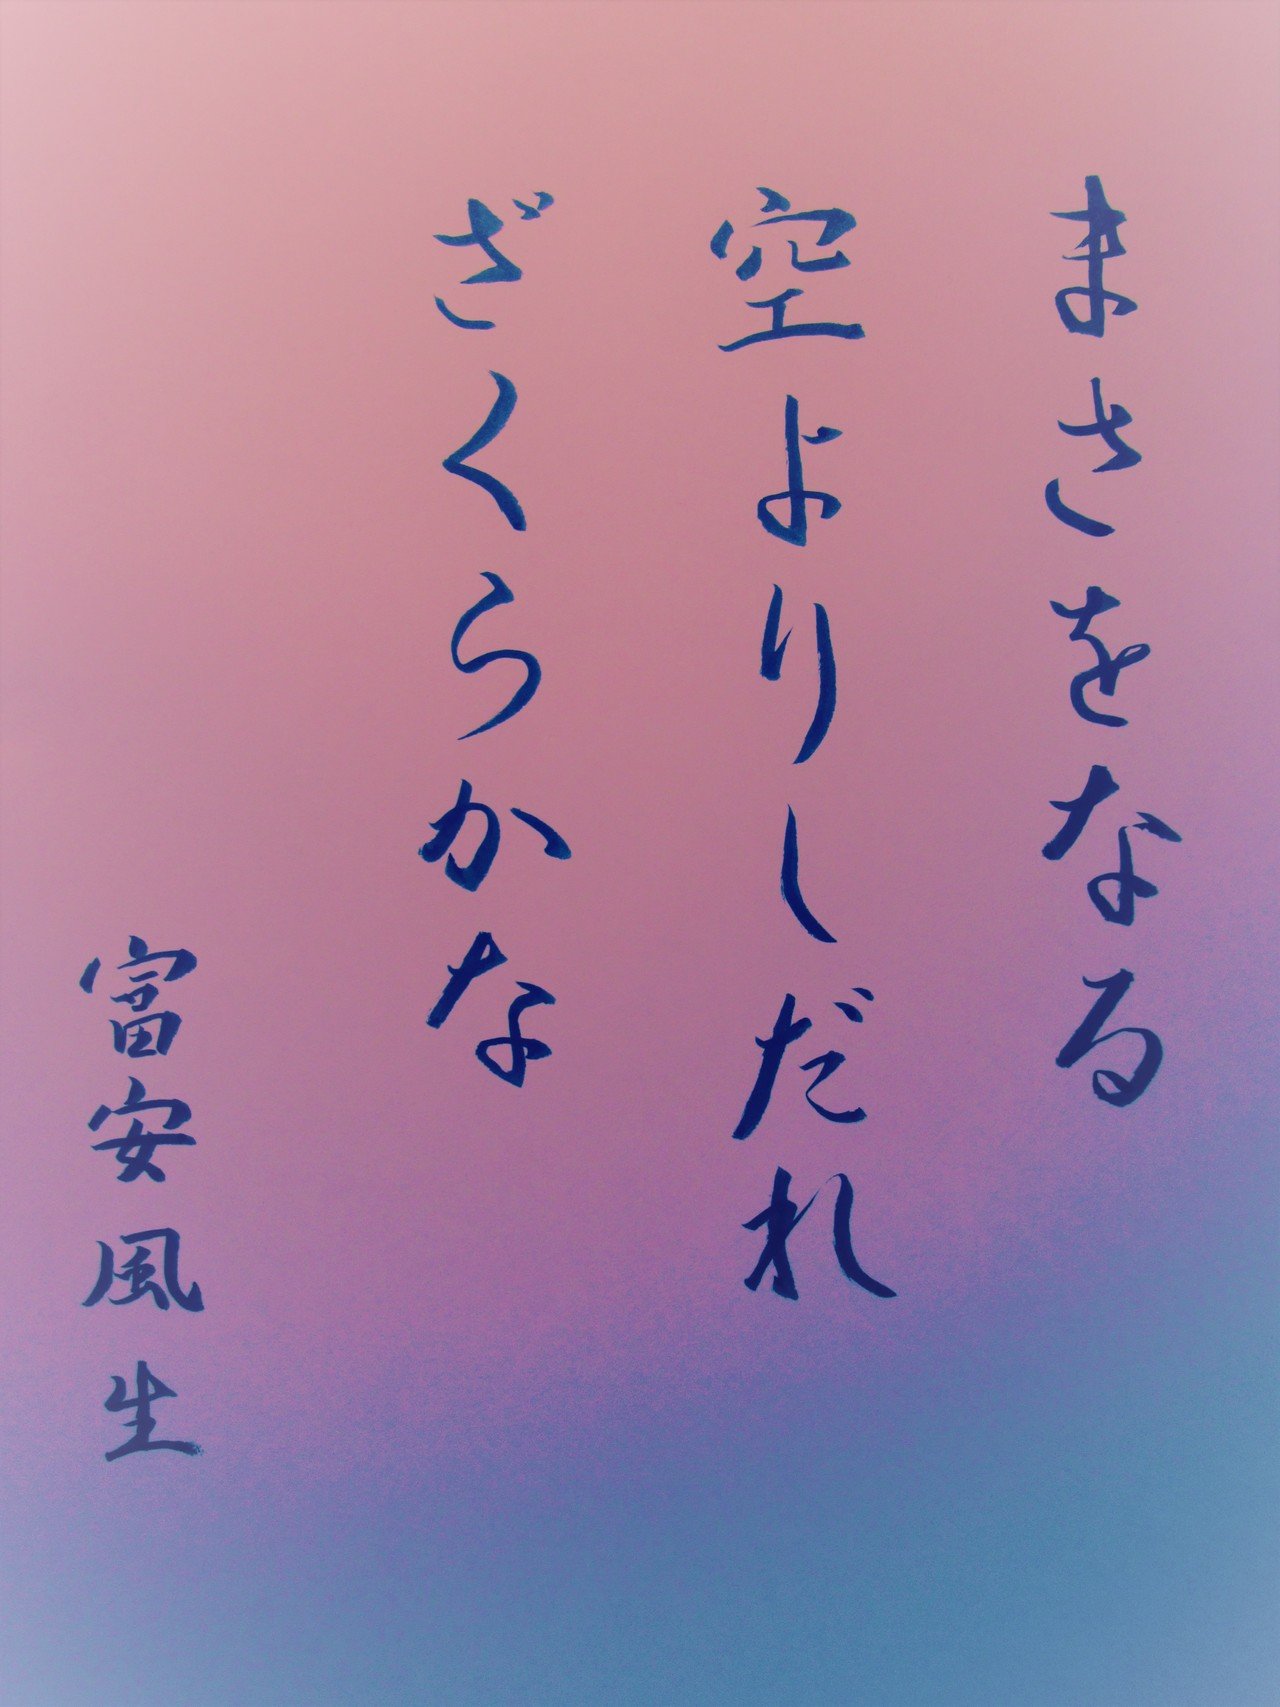 まさをなる
空よりしだれ
ざくらかな
富安風生